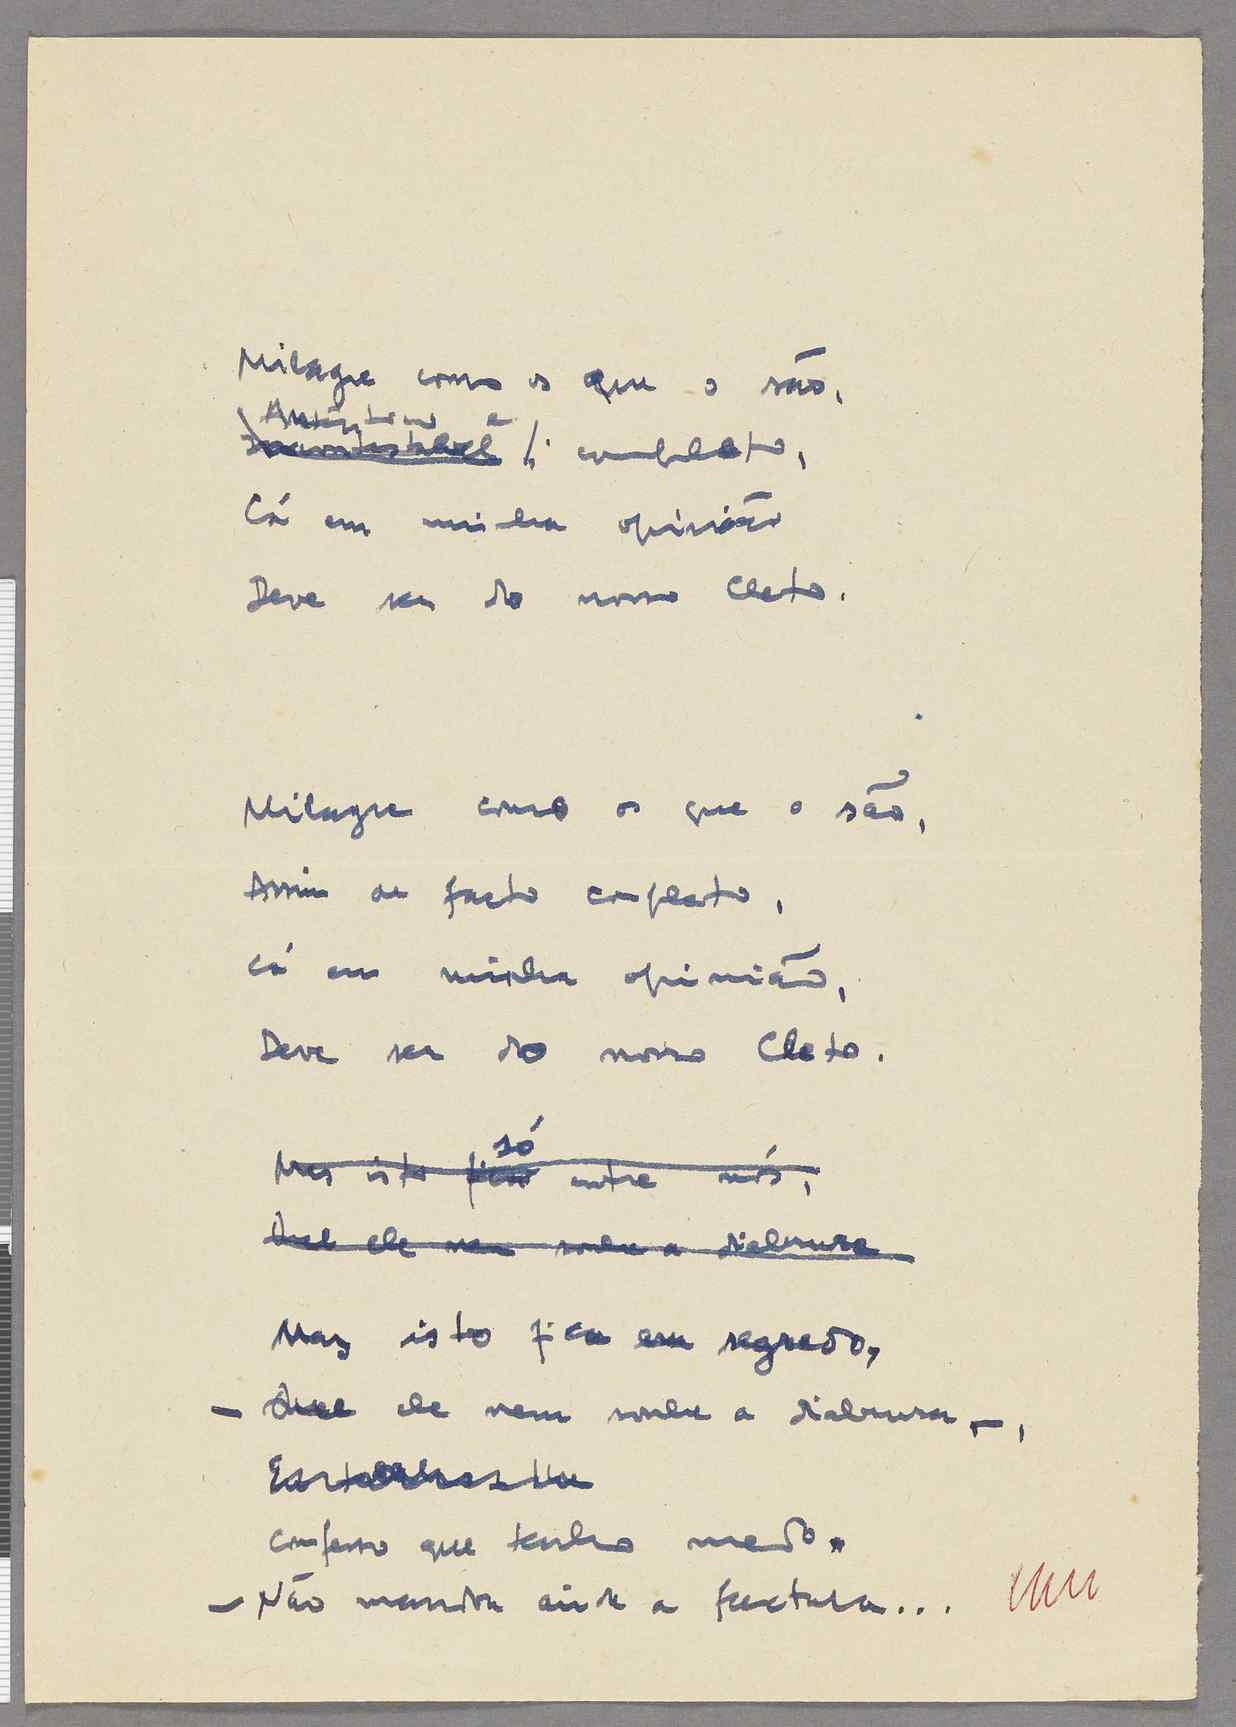 Milagre como os que o são,
Autêntico e
Incontestável /: completo,
Cá em minha opinião
Deve ser do nosso Cleto.
Milagre como os que o são,
Assim de facto completo,
Cá em minha opinião,
Deve ser do nosso Cleto.
só
Mas isto fica entre nós,
Que ele nem sonhe a diabrura
Mas isto fica em segredo,
— Que ele nem sonhe a diabrura —,
Confesso que tenho medo.
— Não mandou ainda a factura...